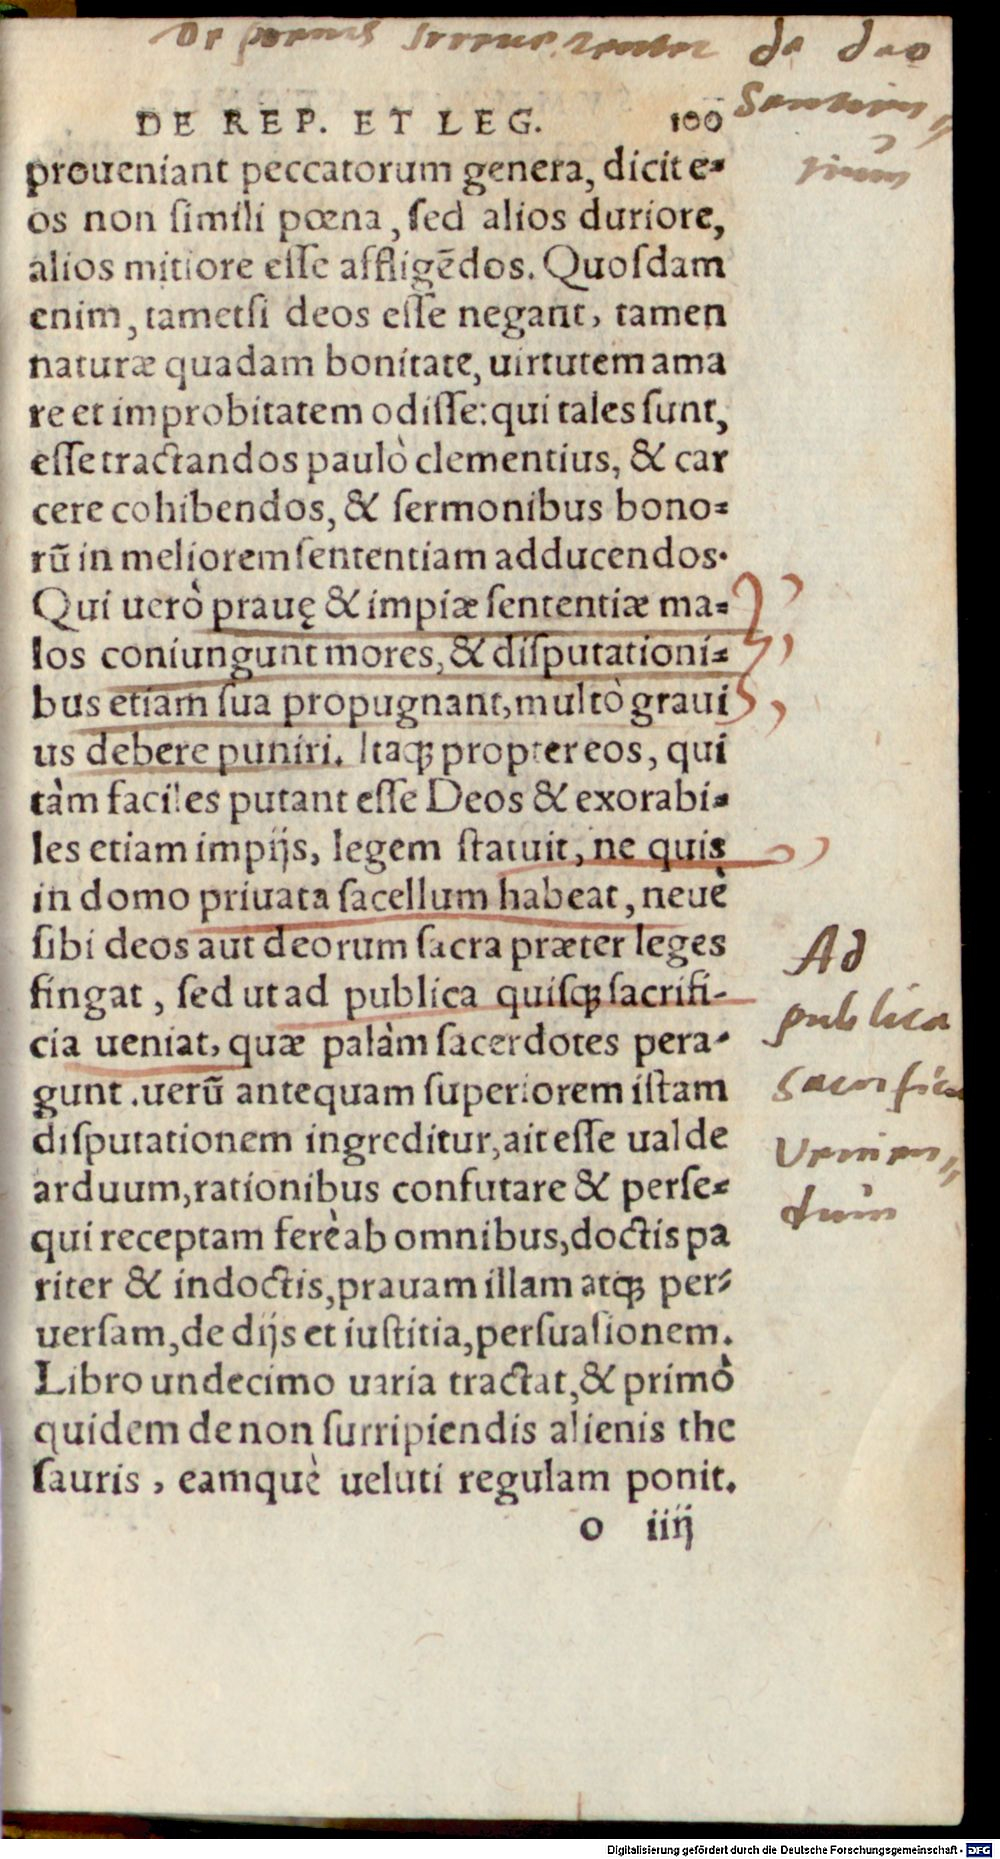 De poenis irreverenter de deo
Sentien„
tium
DE REP. ET LEG. 100
proueniant peccatorum genera, dicit e⸗
os non ſimili pœna, ſed alios duriore,
alios mitiore eſſe affligẽdos. Quoſdam
enim, tametſi deos eſſe negant, tamen
naturæ quadam bonitate, uirtutem ama
re et improbitatem odiſſe: qui tales ſunt,
eſſe tractandos paulò clementius, & car
cere cohibendos, & ſermonibus bono⸗
rũ in meliorem ſententiam adducendos.
Qui uerò prauę & impiæ ſententiæ ma⸗
los coniungunt mores, & diſputationi⸗
bus etiam ſua propugnant, multò graui
us debere puniri. Itaq; propter eos, qui
tàm faciles putant eſſe Deos & exorabi⸗
les etiam impijs, legem ſtatuit, ne quis
in domo priuata ſacellum habeat, neuè
ſibi deos aut deorum ſacra præter leges
fingat, ſed ut ad publica quiſq; ſacrifi-
cia ueniat, quæ palàm ſacerdotes pera⸗
gunt. uerũ antequam ſuperiorem iſtam
diſputationem ingreditur, ait eſſe ualde
arduum, rationibus confutare & perſe⸗
qui receptam ferè ab omnibus, doctis pa
riter & indoctis, prauam illam atq; per⸗
uerſam, de dijs et iuſtitia, perſuaſionem.
Libro undecimo uaria tractat, & primò
quidem de non ſurripiendis alienis the
ſauris, eamquè ueluti regulam ponit.
o iiij
Ad
publica
sacrificia
Venien„
dum
Digitalisierung gefördert durch die Deutsche Forschungsgemeinschaft - DFG